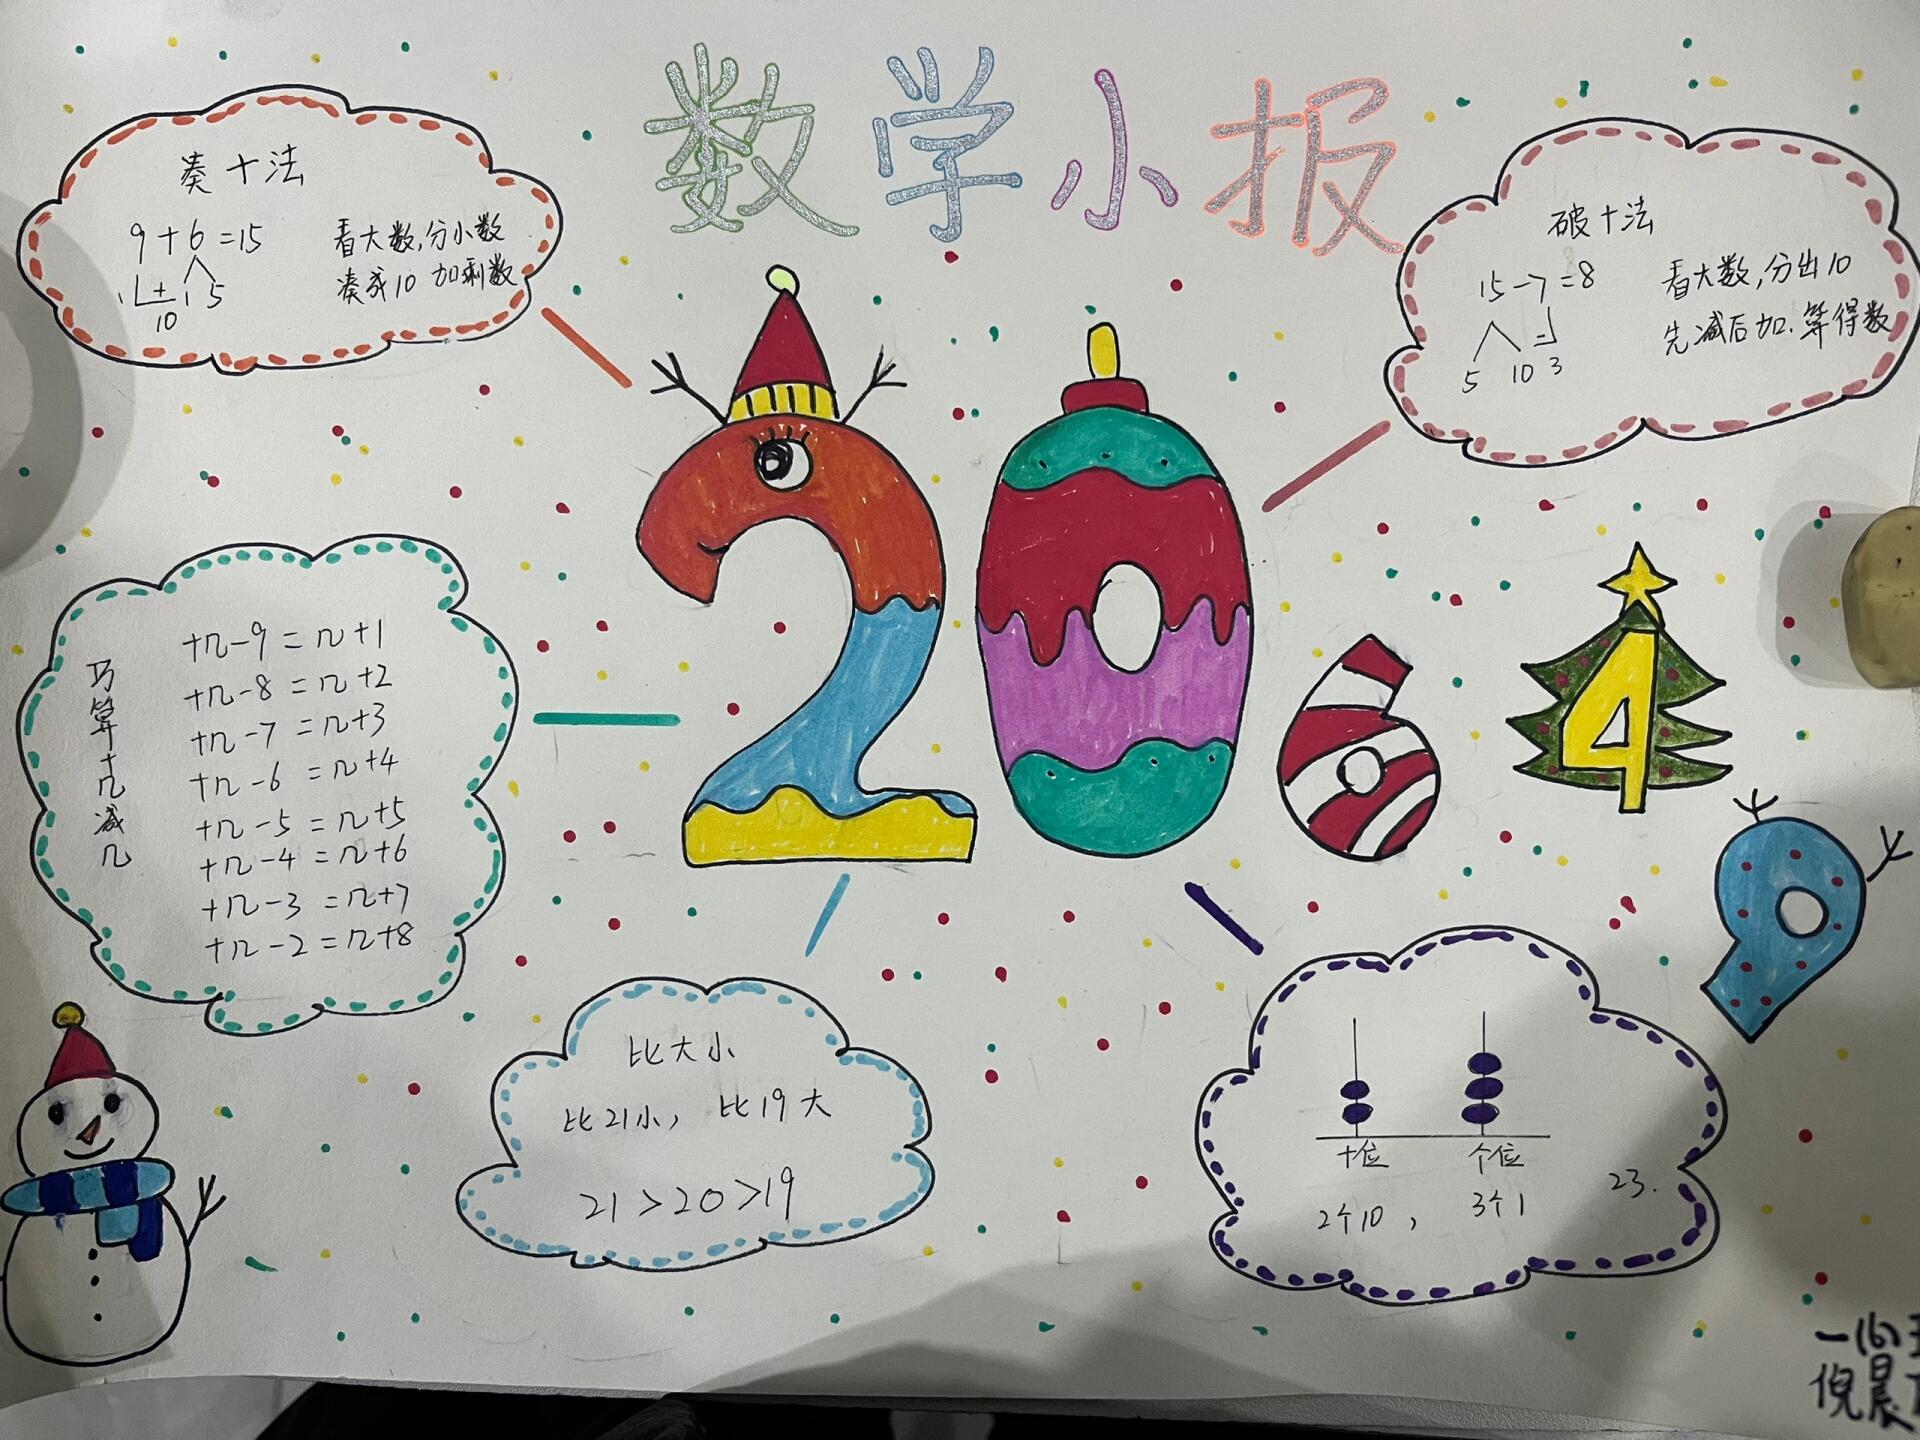 数学小报
凑十法
9+6=15
1 5
10
看大数,分小数
凑成10 加剩数
破十法
15-7=8
5 10 3
看大数,分出10
先减后加.算得数
20
6
4
9
巧算十几减几
十几-9=几+1
十几-8=几+2
十几-7=几+3
十几-6=几+4
十几-5=几+5
十几-4=几+6
十几-3=几+7
十几-2=几+8
比大小
比21小, 比19大
21>20>19
十位 个位
2个10, 3个1
23.
一(6)
倪晨